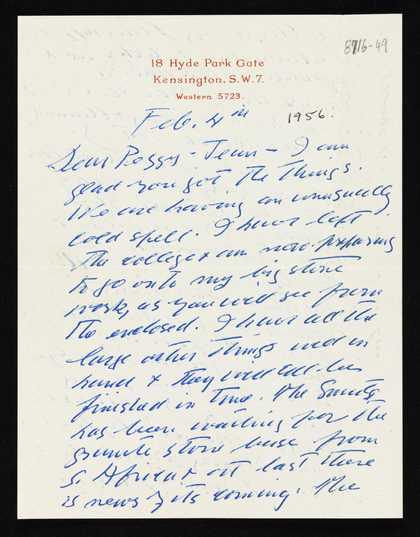 8716-49
18 Hyde Park Gate
Kensington. S.W.7.
Western 5723.
Feb. 4th 1956.
Dear Peggy-Jean - I am
glad you got the things.
We are having an unusually
cold spell. I have left
the college & am now preparing
to go onto my big stone
work, as you will see from
the enclosed. I have all the
large other things well in
hand & they will all be
finished in time. The Smuts
has been waiting for the
granite stone base from
S. Africa & at last there
is news of its coming. The